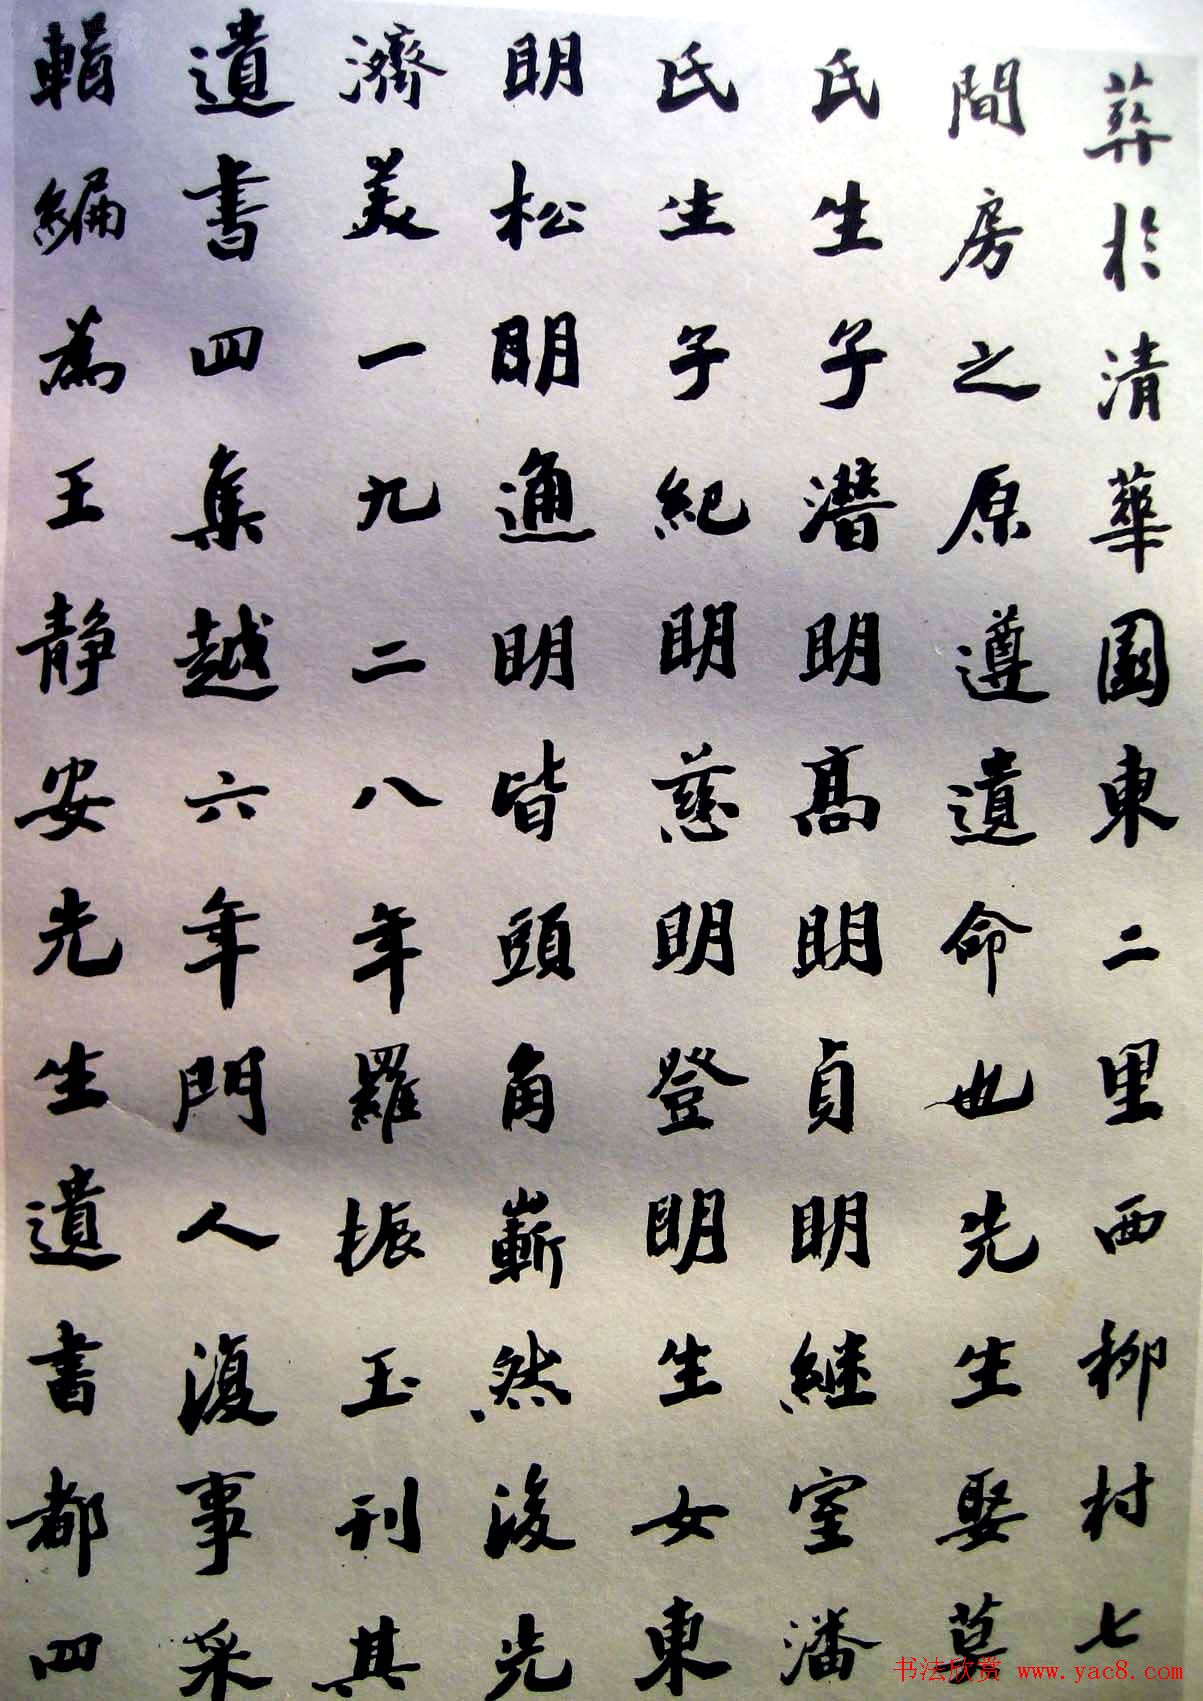 葬於清華園東二里西柳村七
間房之原遵遺命也先生娶莫
氏生子潛明髙明貞明継室潘
氏生子紀明慈明登明生女東
明松明通明皆頭角嶄然後先
濟美一九二八年羅振玉刊其
遺書四集越六年門人復事采
輯編為王静安先生遺書都四
书法欣赏 www.yac8.com